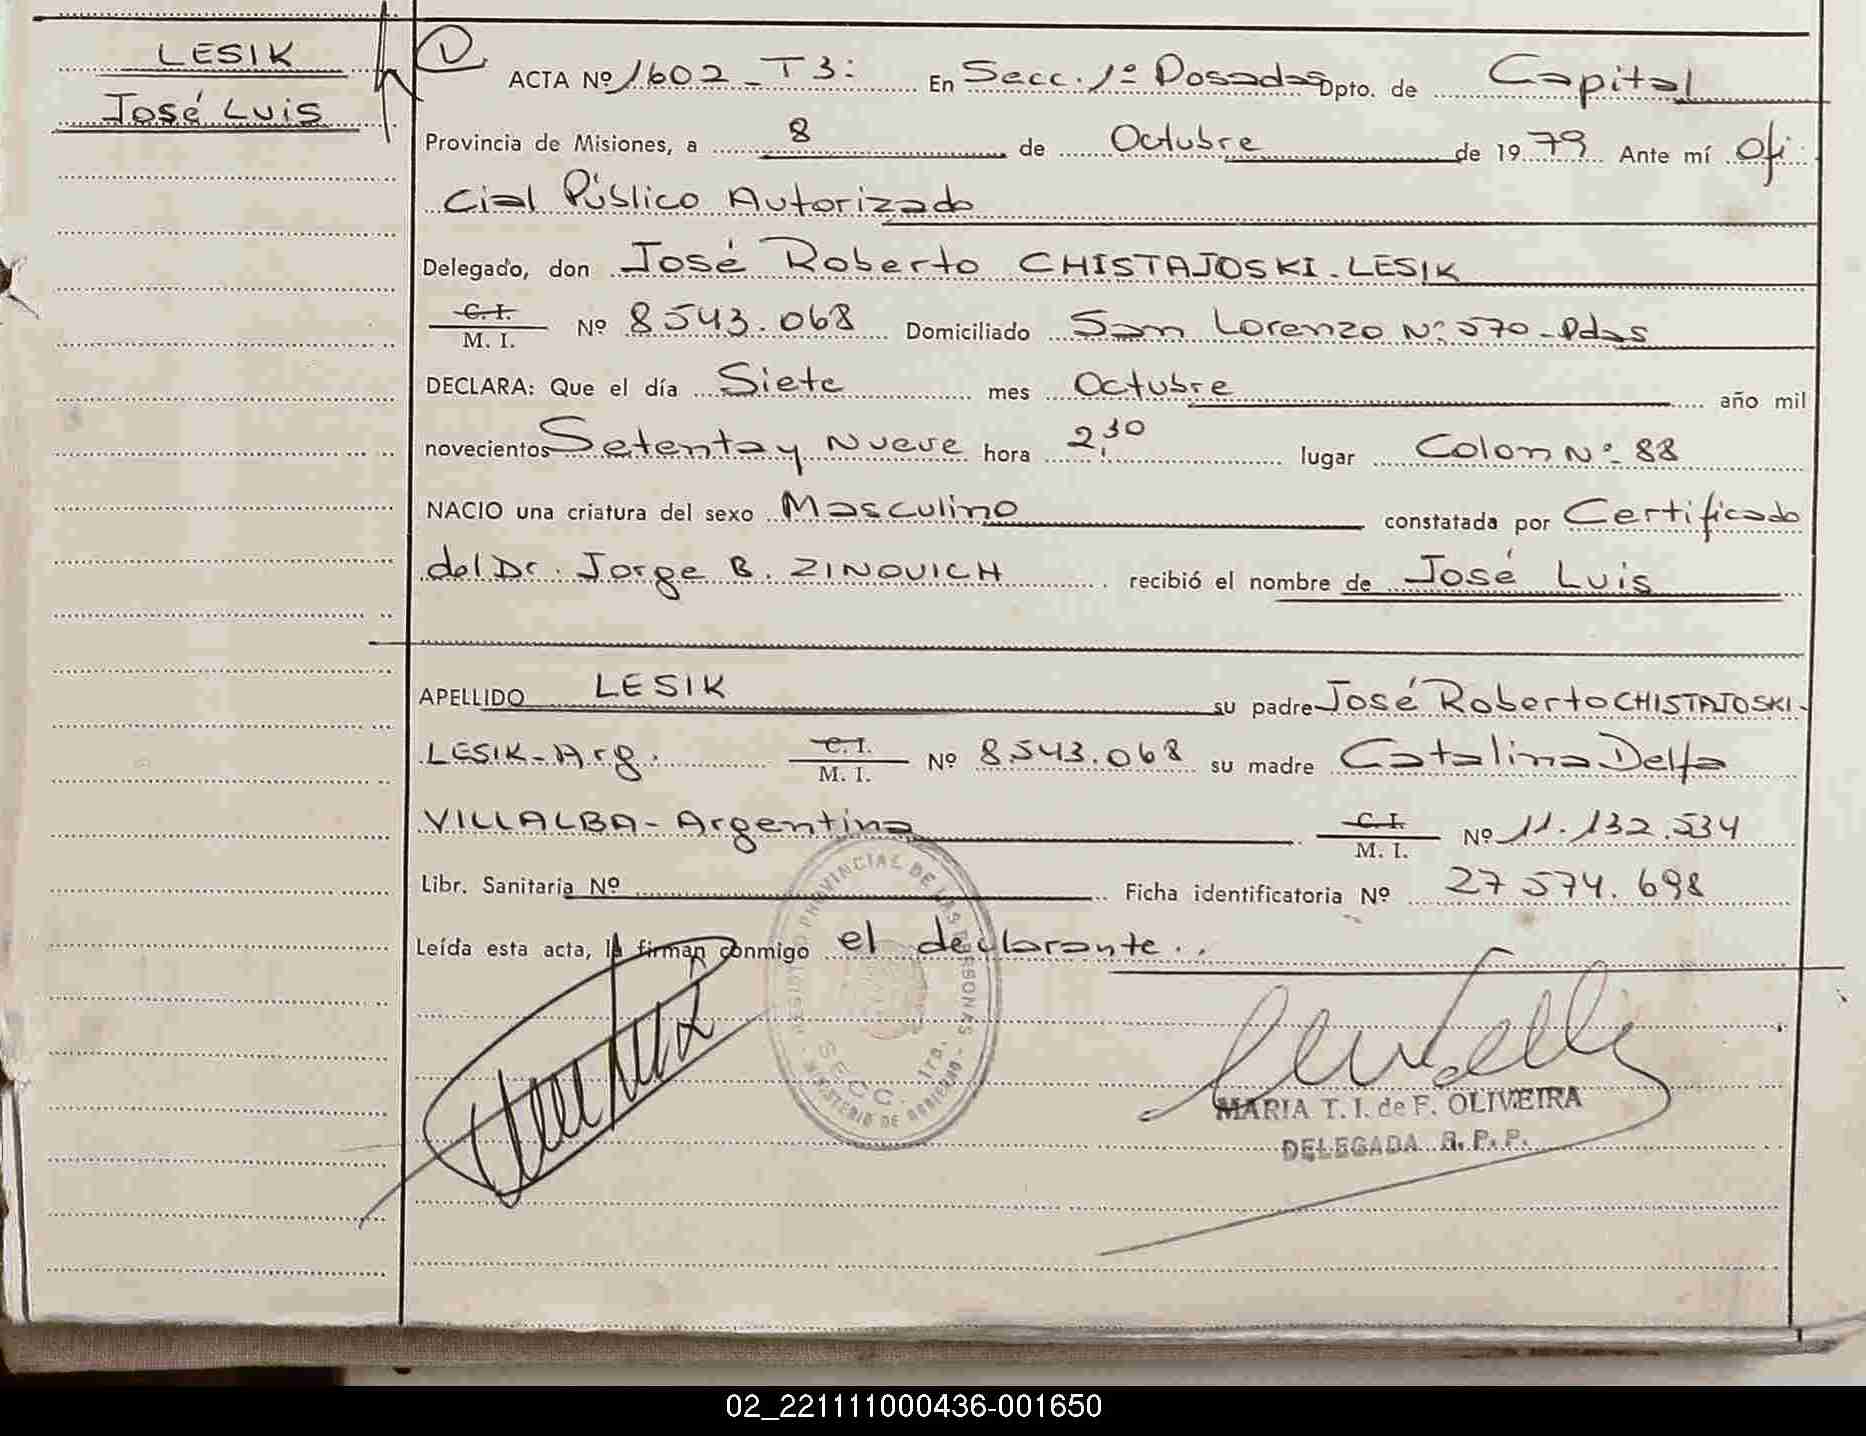 LESIK
José Luis
ACTA Nº 1602 - T 3: En Secc. 1º Posadas Dpto. de Capital
Provincia de Misiones, a 8 de Octubre de 19 79 Ante mí Ofi
cial Público Autorizado
Delegado, don José Roberto CHISTAJOSKI - LESIK
C. I.
M. I. Nº 8.543.068 Domiciliado San Lorenzo Nº 570 - Pdas
DECLARA: Que el día Siete mes Octubre año mil
novecientos Setenta y Nueve hora 2,30 lugar Colon Nº 88
NACIO una criatura del sexo Masculino constatada por Certificado
del Dr. Jorge B. ZINOVICH recibió el nombre de José Luis
APELLIDO LESIK su padre José Roberto CHISTAJOSKI -
LESIK - Arg. C. I.
M. I. Nº 8.543.068 su madre Catalina Delfa
VILLALBA - Argentina C. I.
M. I. Nº 11.132.534
Libr. Sanitaria Nº Ficha identificatoria Nº 27 574.698
Leída esta acta, la firman conmigo el declarante..
REGISTRO PROVINCIAL DE LAS PERSONAS
SECC. 1ra.
MINISTERIO DE GOBIERNO
MARIA T. I. de F. OLIVEIRA
DELEGADA R. P. P.
02_221111000436-001650